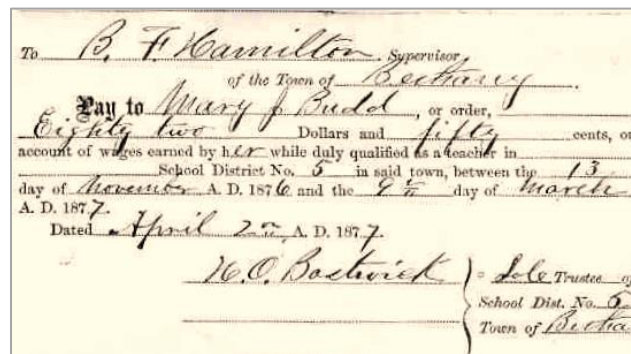 To B. F. Hamilton Supervisor
of the Town of Bethany
Pay to Mary J Budd, or order,
Eighty two Dollars and fifty cents, on
account of wages earned by her while duly qualified as a teacher in
School District No. 5 in said town, between the 13
day of November A. D. 1876 and the 9th day of March
A. D. 1877.
Dated April 2nd, A. D. 1877.
H. O. Bostwick Sole Trustee of
School Dist. No. 5
Town of Betha